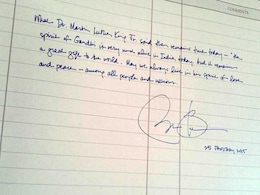 COMMENTS
What Dr. Martin Luther King Jr. said then remains true today – "the
spirit of Gandhi is very much alive in India today," and it remains
a great gift to the world. May we always live in his spirit of love
and peace – among all people and nations.
25 JANUARY 2015